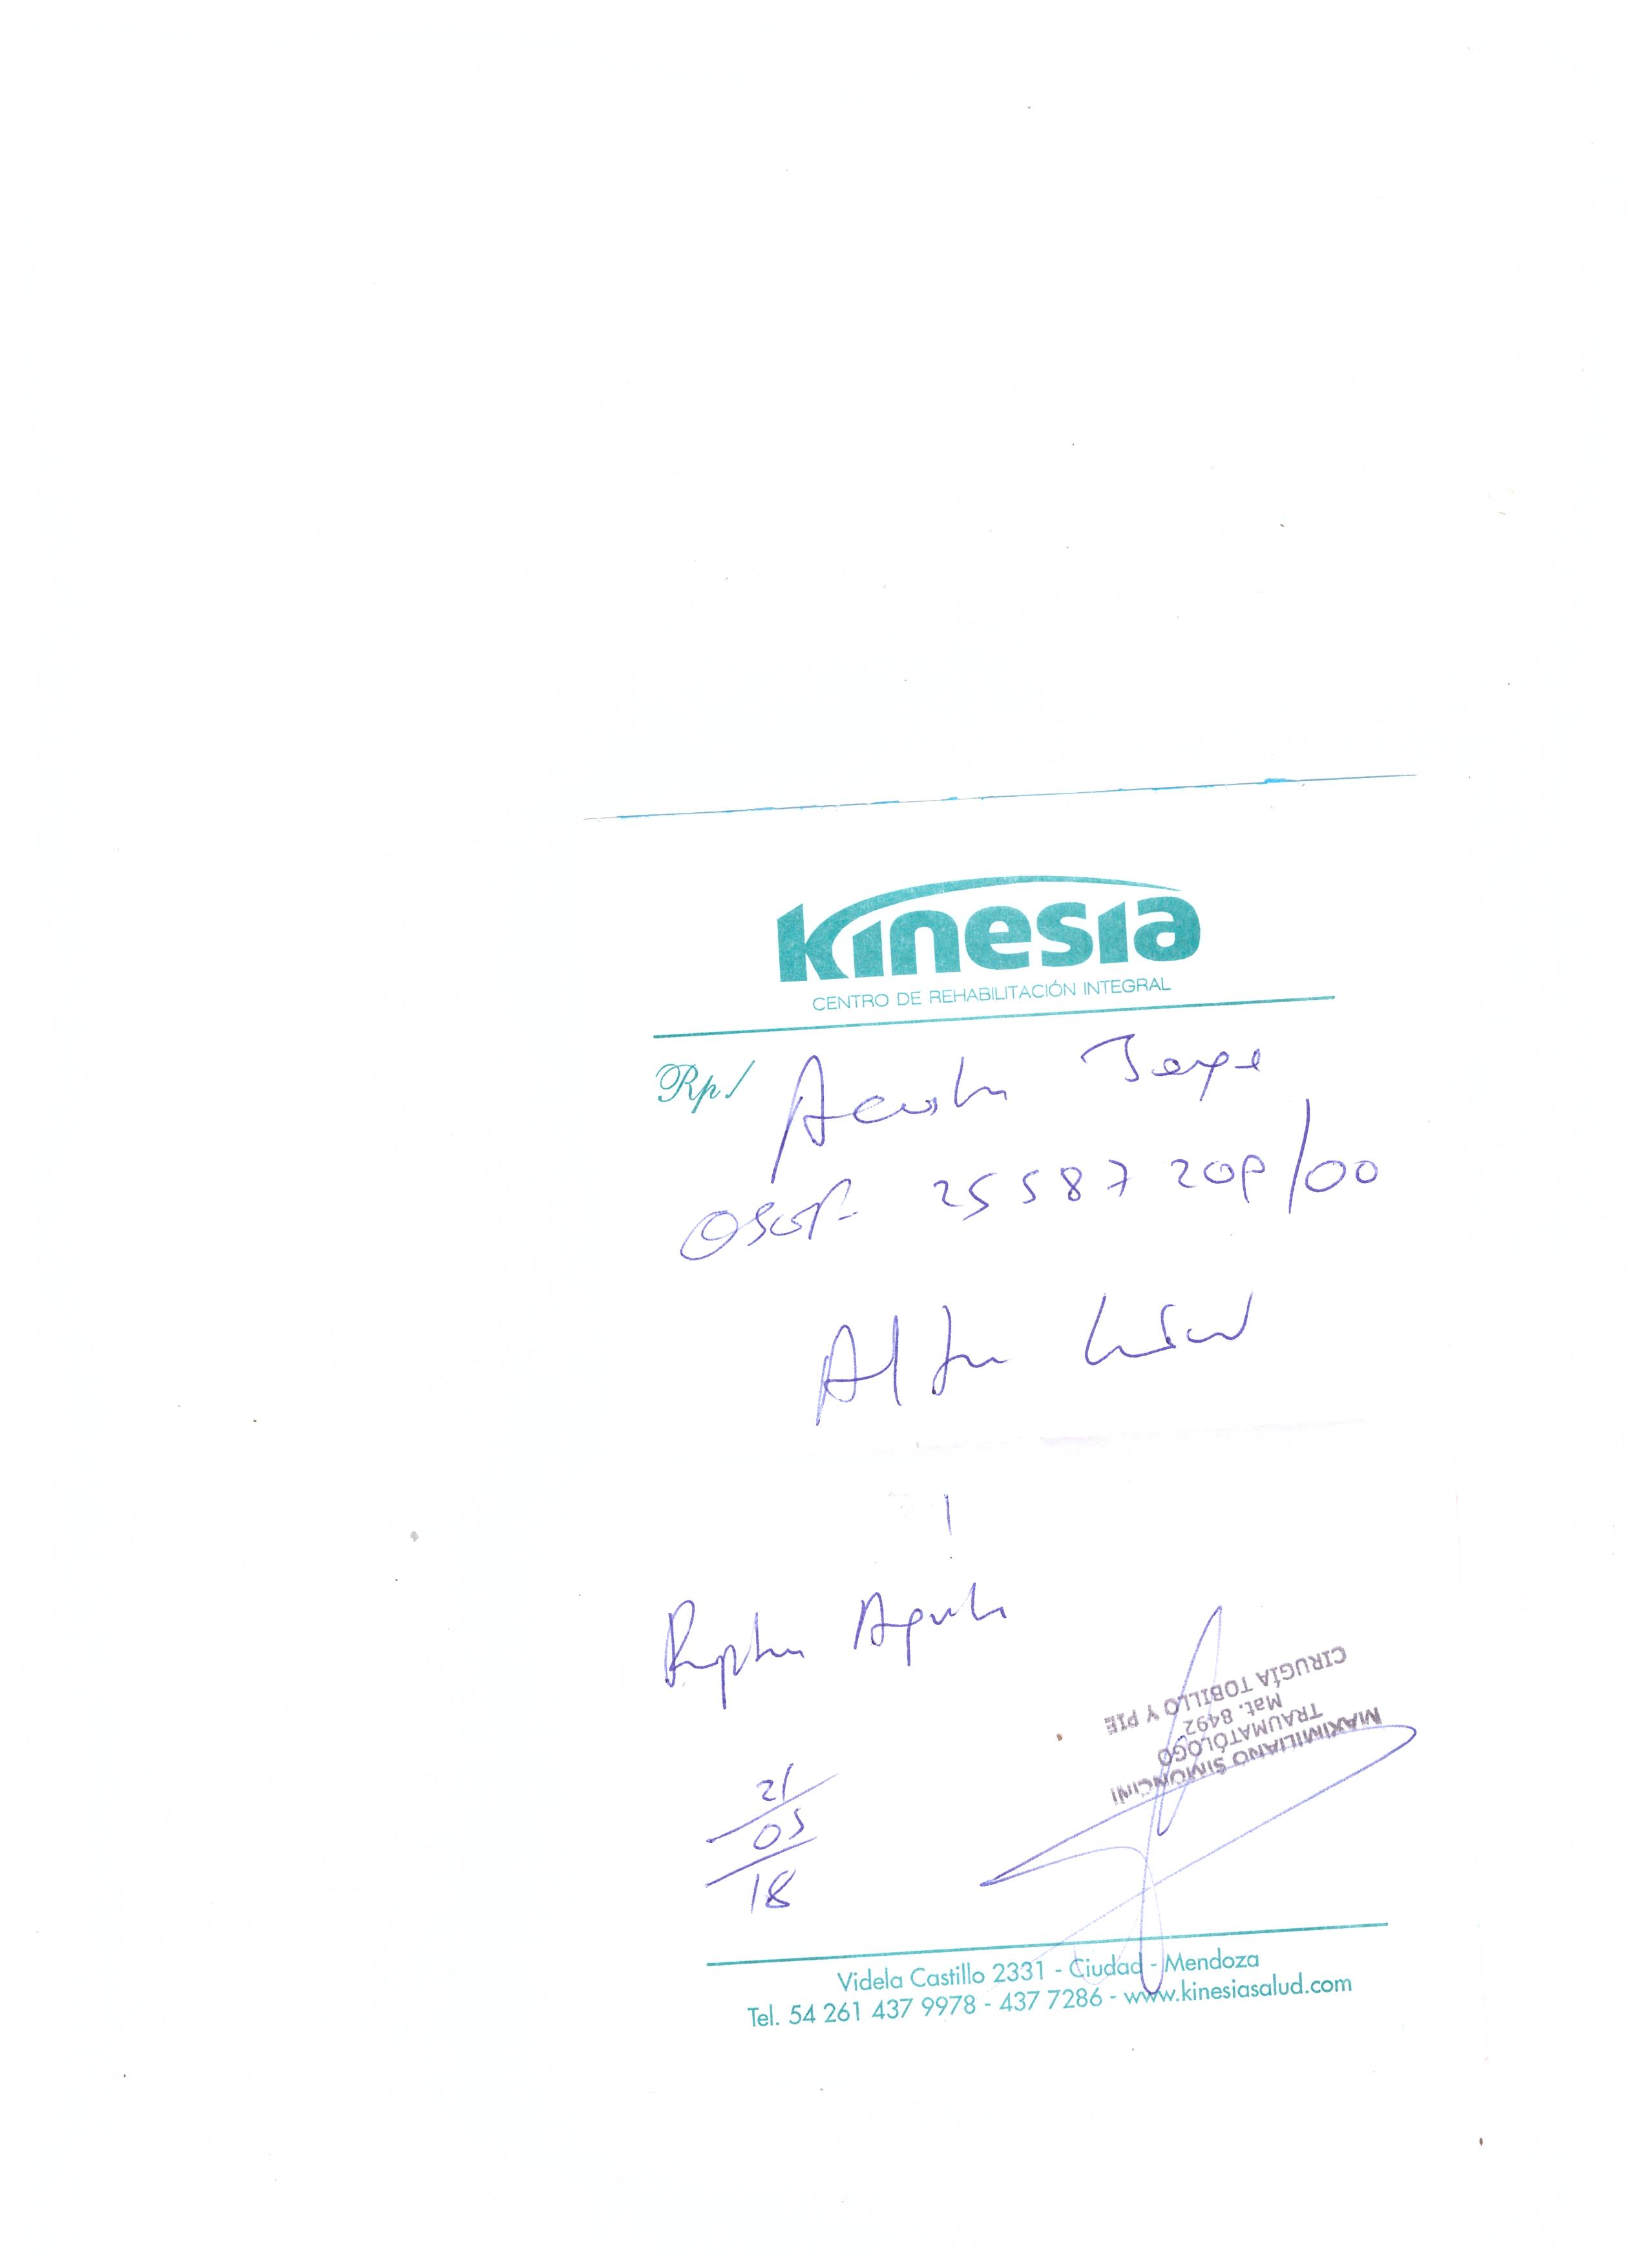 kinesia
CENTRO DE REHABILITACIÓN INTEGRAL
Rp/ Acosta Jorge
25587209/00
Alta
Ruptura Aquiles
21
05
18
MAXIMILIANO SIMONCINI
TRAUMATÓLOGO
Mat. 8492
CIRUGÍA TOBILLO Y PIE
Videla Castillo 2331 - Ciudad - Mendoza
Tel. 54 261 437 9978 - 437 7286 - www.kinesiasalud.com